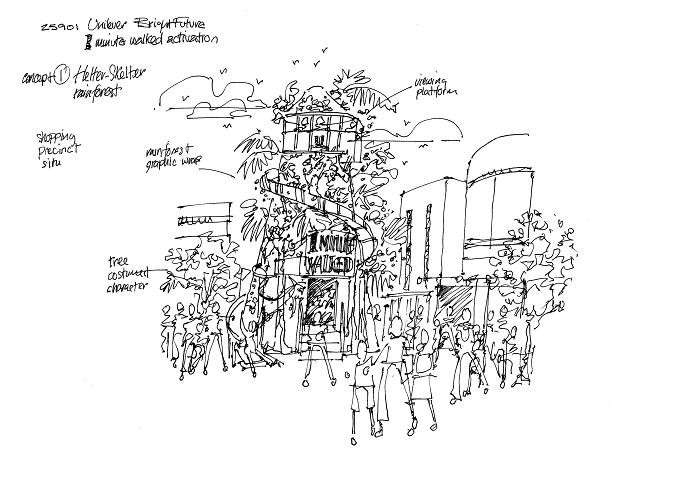 25901 Unilever Bright Future
1 minute walked activation
concept 1 Helter-Skelter
rainforest
viewing
platform
shopping
precinct
situ
rainforest
graphic wrap
1 MINUTE
WALKED
tree
costumed
character